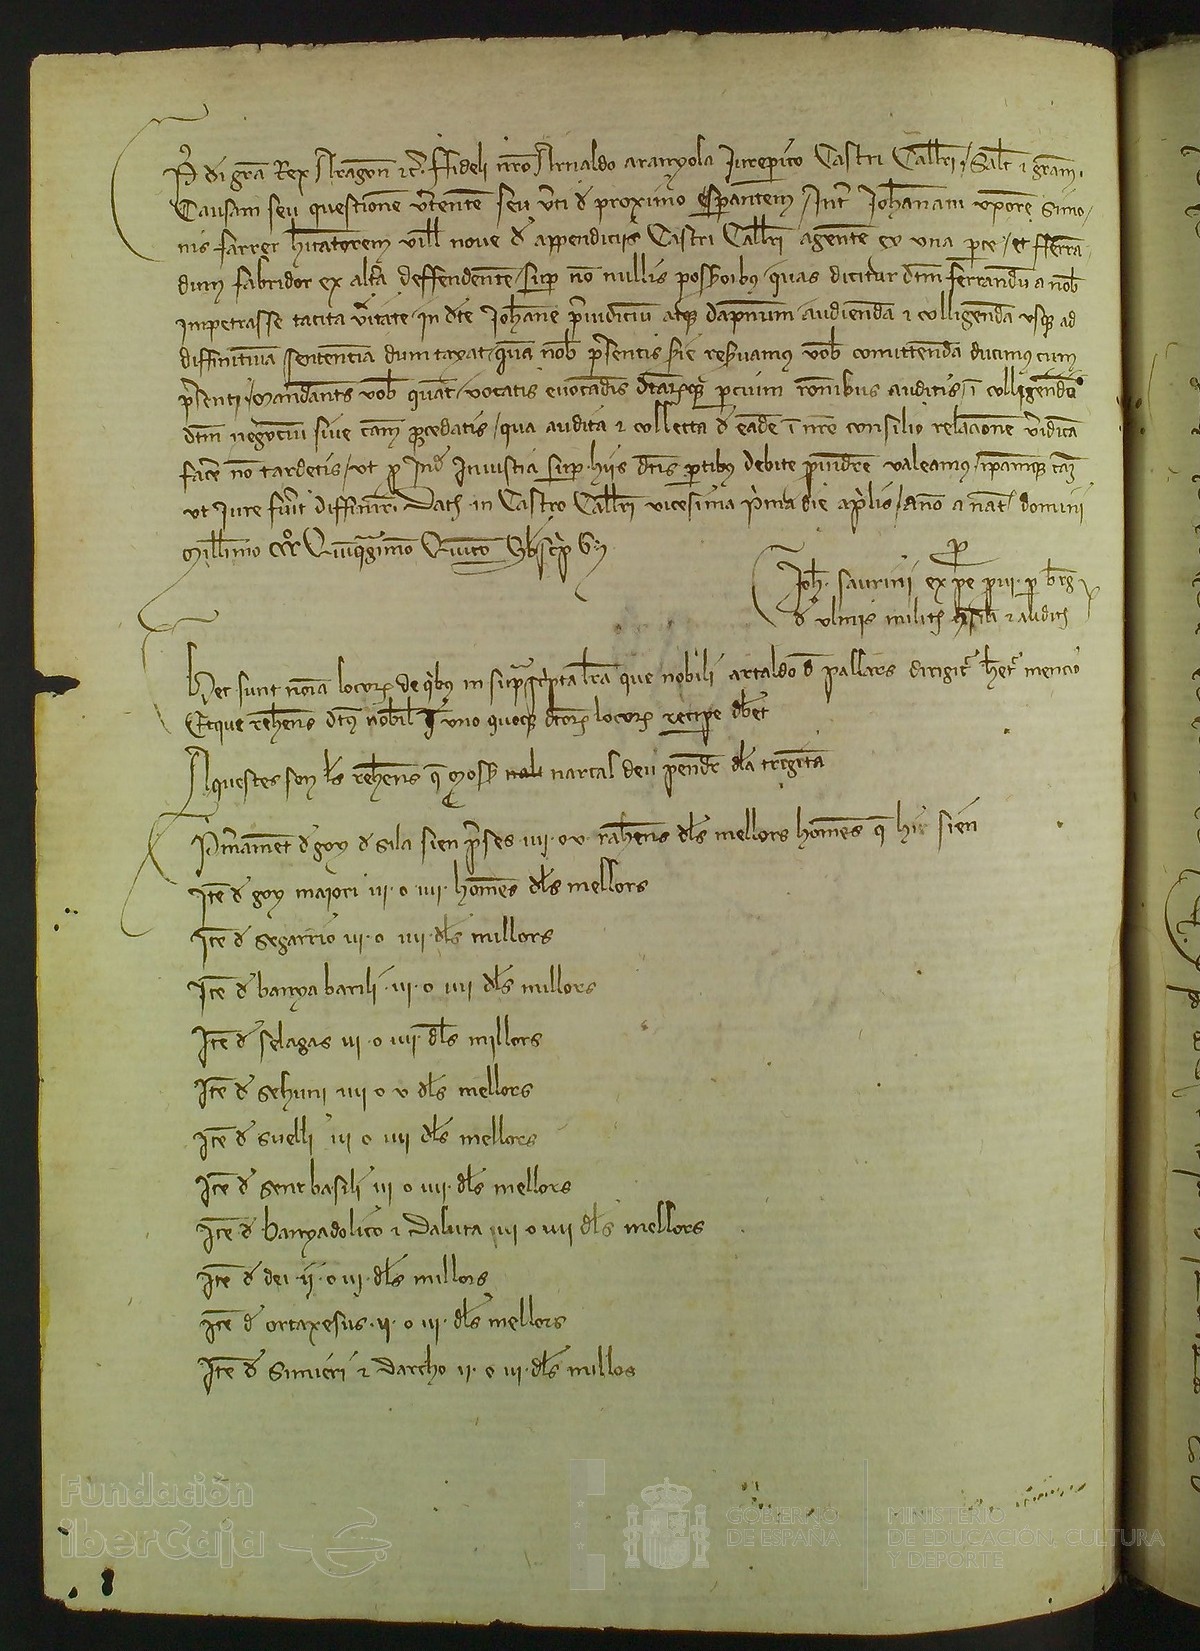 P. dei gra Rex Aragon etc. Fideli nro Arnaldo aranyola Jurepito Castri Callri Salt et gram.
Causam seu questione vertente seu verti de proximo esperantem Inter Johanam vxore Simo
nis farrer hitatorem ville noue de appendiciis Castri Callri agente ex una pte et fferra
dum fabridor ex altra deffendente sup no nullis quas dicitur dtm ferrandu a nob
impetrasse tacita vitate in dte Johane preiudiciu atque dapnum audienda et colligenda vsque ad
diffinitiua sentencia dum taxat qua nob presentis sie reseruamus vob comittenda ducimus cum
presenti mandantes vob quat vocatis euocandis dtarque parcium ronibus auditis et colligendu
dtm negociu siue cam procedatis qua audita et collecta de eade in nre consilio relacione veridica
facere no tardetis vt Iusticia sup hiis dtis partibus debite prouidere valeamus ipamque cam
vt Jure fuerit diffinire. Dat in Castro Callri vicesima prima die aprilis Anno a nat domini
Millimo CCC Quinquagimo Quinto
Joh. saurini ex pte
de vlmis milit et audit
Hec sunt noia locorum de quibus in suprascripta lra que nobili artaldo de pallars dirigitur hetur mencio
Et que rehens dtus nobil in uno quoque dtorum locorum recipe debet
Aquestes son les rehens que mosser nartal deu pendre dela
Primament de goy de sila sien preses .IIII. o v. rahens dels mellors homens que hie sien
Item de goy maiori III. o IIII. homens dels mellors
Item de segarrio III. o IIII. dels millors
Item de banya barili .III. o IIII dels millors
Item de selagas III o IIII. dels millors
Item de sehuni IIII o v dels mellors
Item de suelli III o IIII dels mellors
Item de sent basili III o IIII. dels mellors
Item de banyadolico et daluta III o IIII dels mellors
Item de dei .II. o III. dels millors
Item de ortaxesus .II. o III. dels mellors
Item de Simieri et darcho II. o III. dels millos
Fundación
iberCaja
GOBIERNO
DE ESPAÑA
MINISTERIO
DE EDUCACIÓN, CULTURA
Y DEPORTE